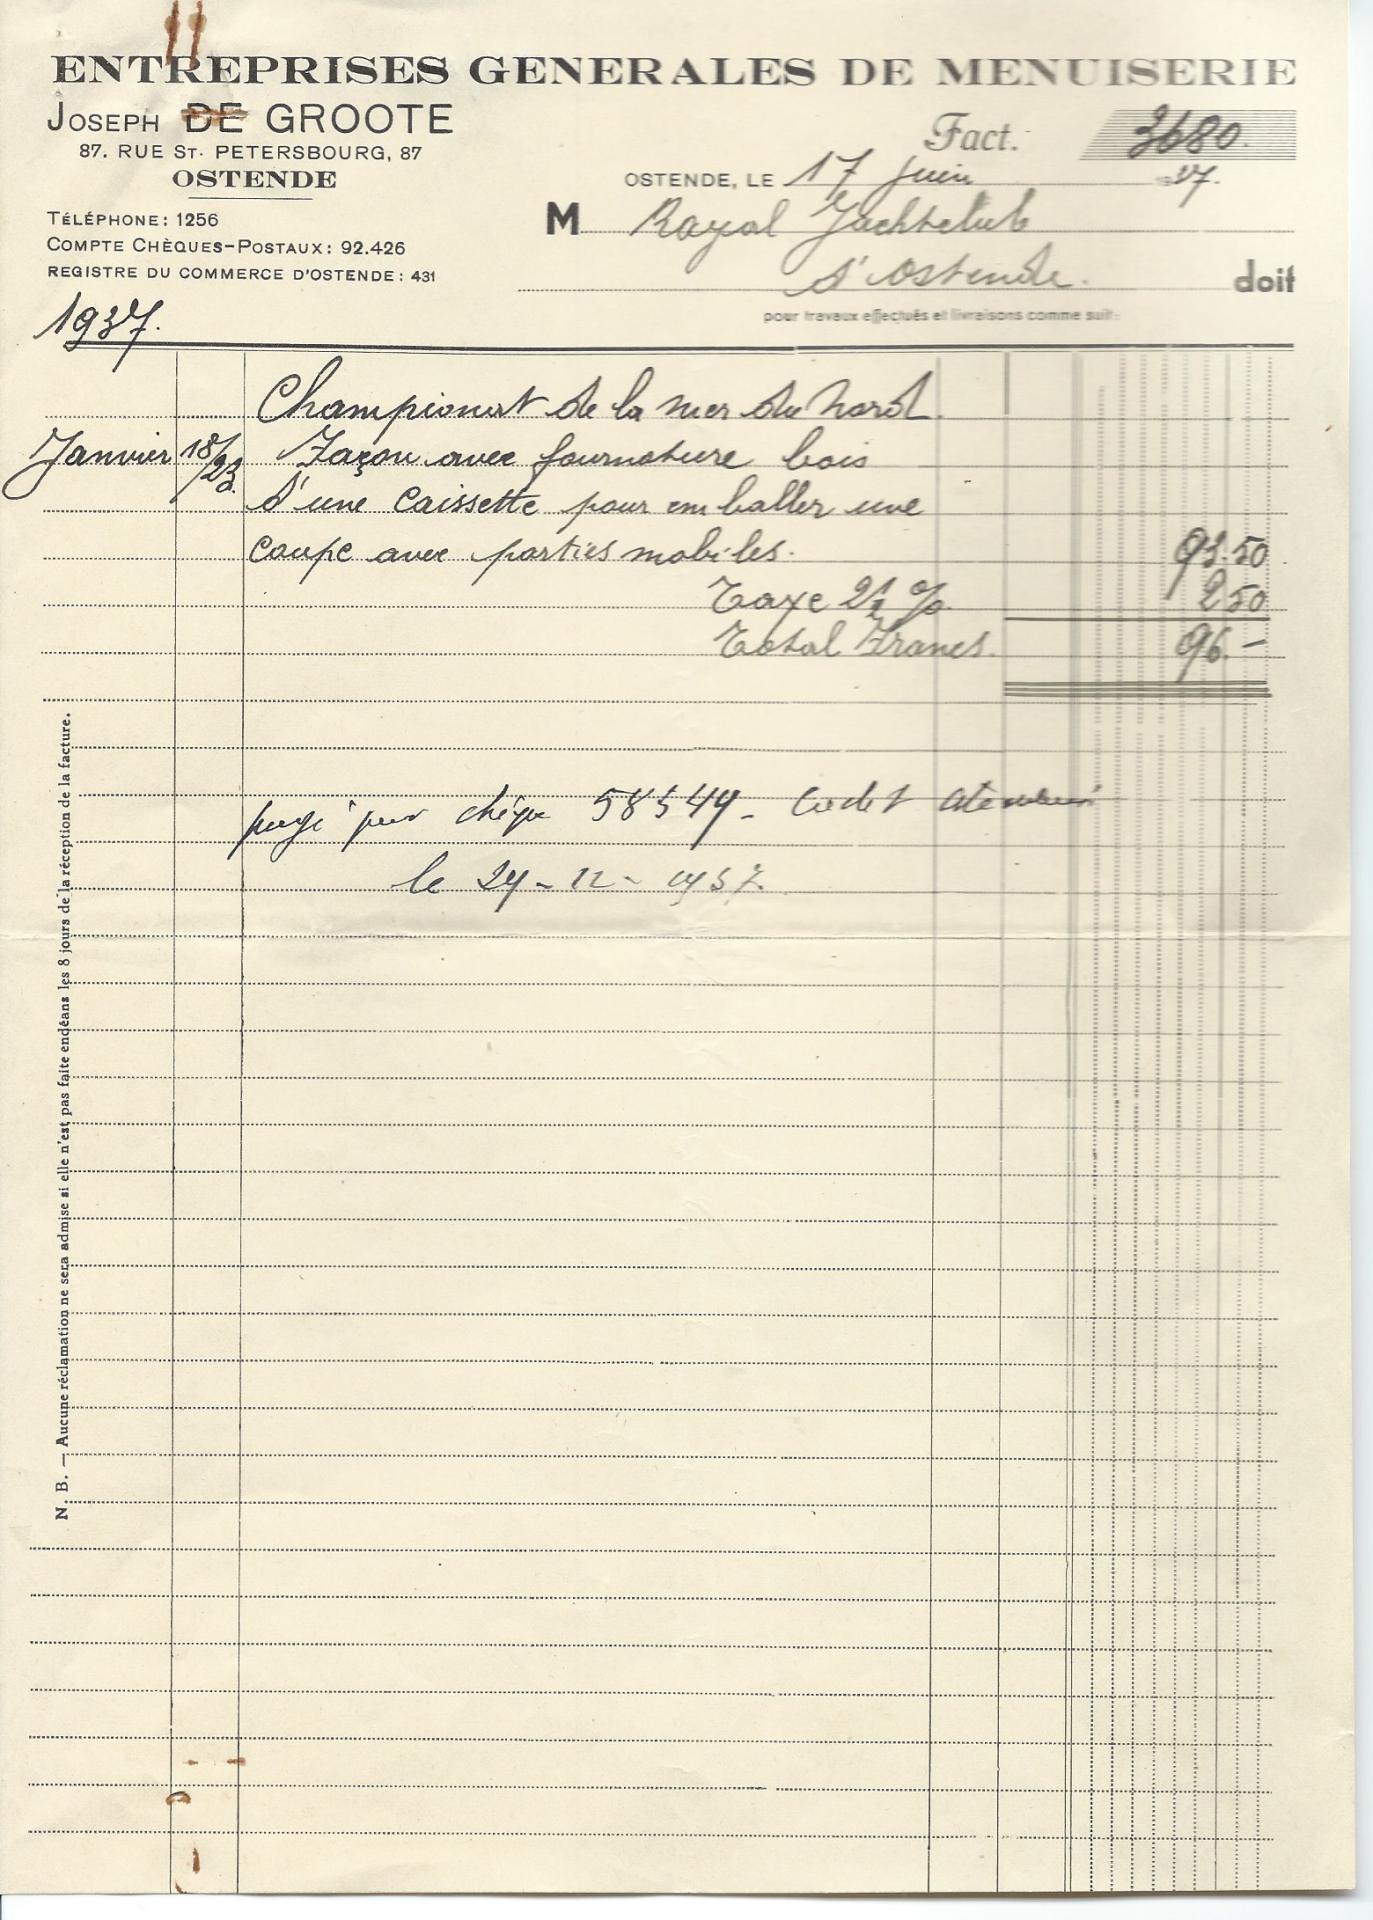 ENTREPRISES GENERALES DE MENUISERIE
JOSEPH DE GROOTE
87. RUE ST. PETERSBOURG, 87
OSTENDE
TÉLÉPHONE: 1256
COMPTE CHÈQUES-POSTAUX: 92.426
REGISTRE DU COMMERCE D'OSTENDE: 431
Fact. 3680.
OSTENDE, LE 17 Juin 1937.
M Royal Yachtclub
d'Ostende. doit
pour travaux effectués et livraisons comme suit:
1937.
Championat de la mer du Nord.
Janvier 18/23. Façon avec fournature bois
d'une caissette pour emballer une
coupe avec parties mobiles. 93.50
Taxe 2½ % 2 50
Total Francs. 96.-
payé par chèque 58549 -
le 24-12-1937.
N. B. — Aucune réclamation ne sera admise si elle n'est pas faite endéans les 8 jours de la réception de la facture.